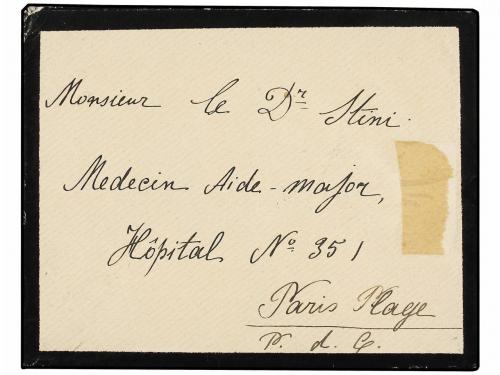 Monsieur le Dr Stini.
Medecin Aide-major,
Hôpital No 351
Paris Plage
P. d. C.